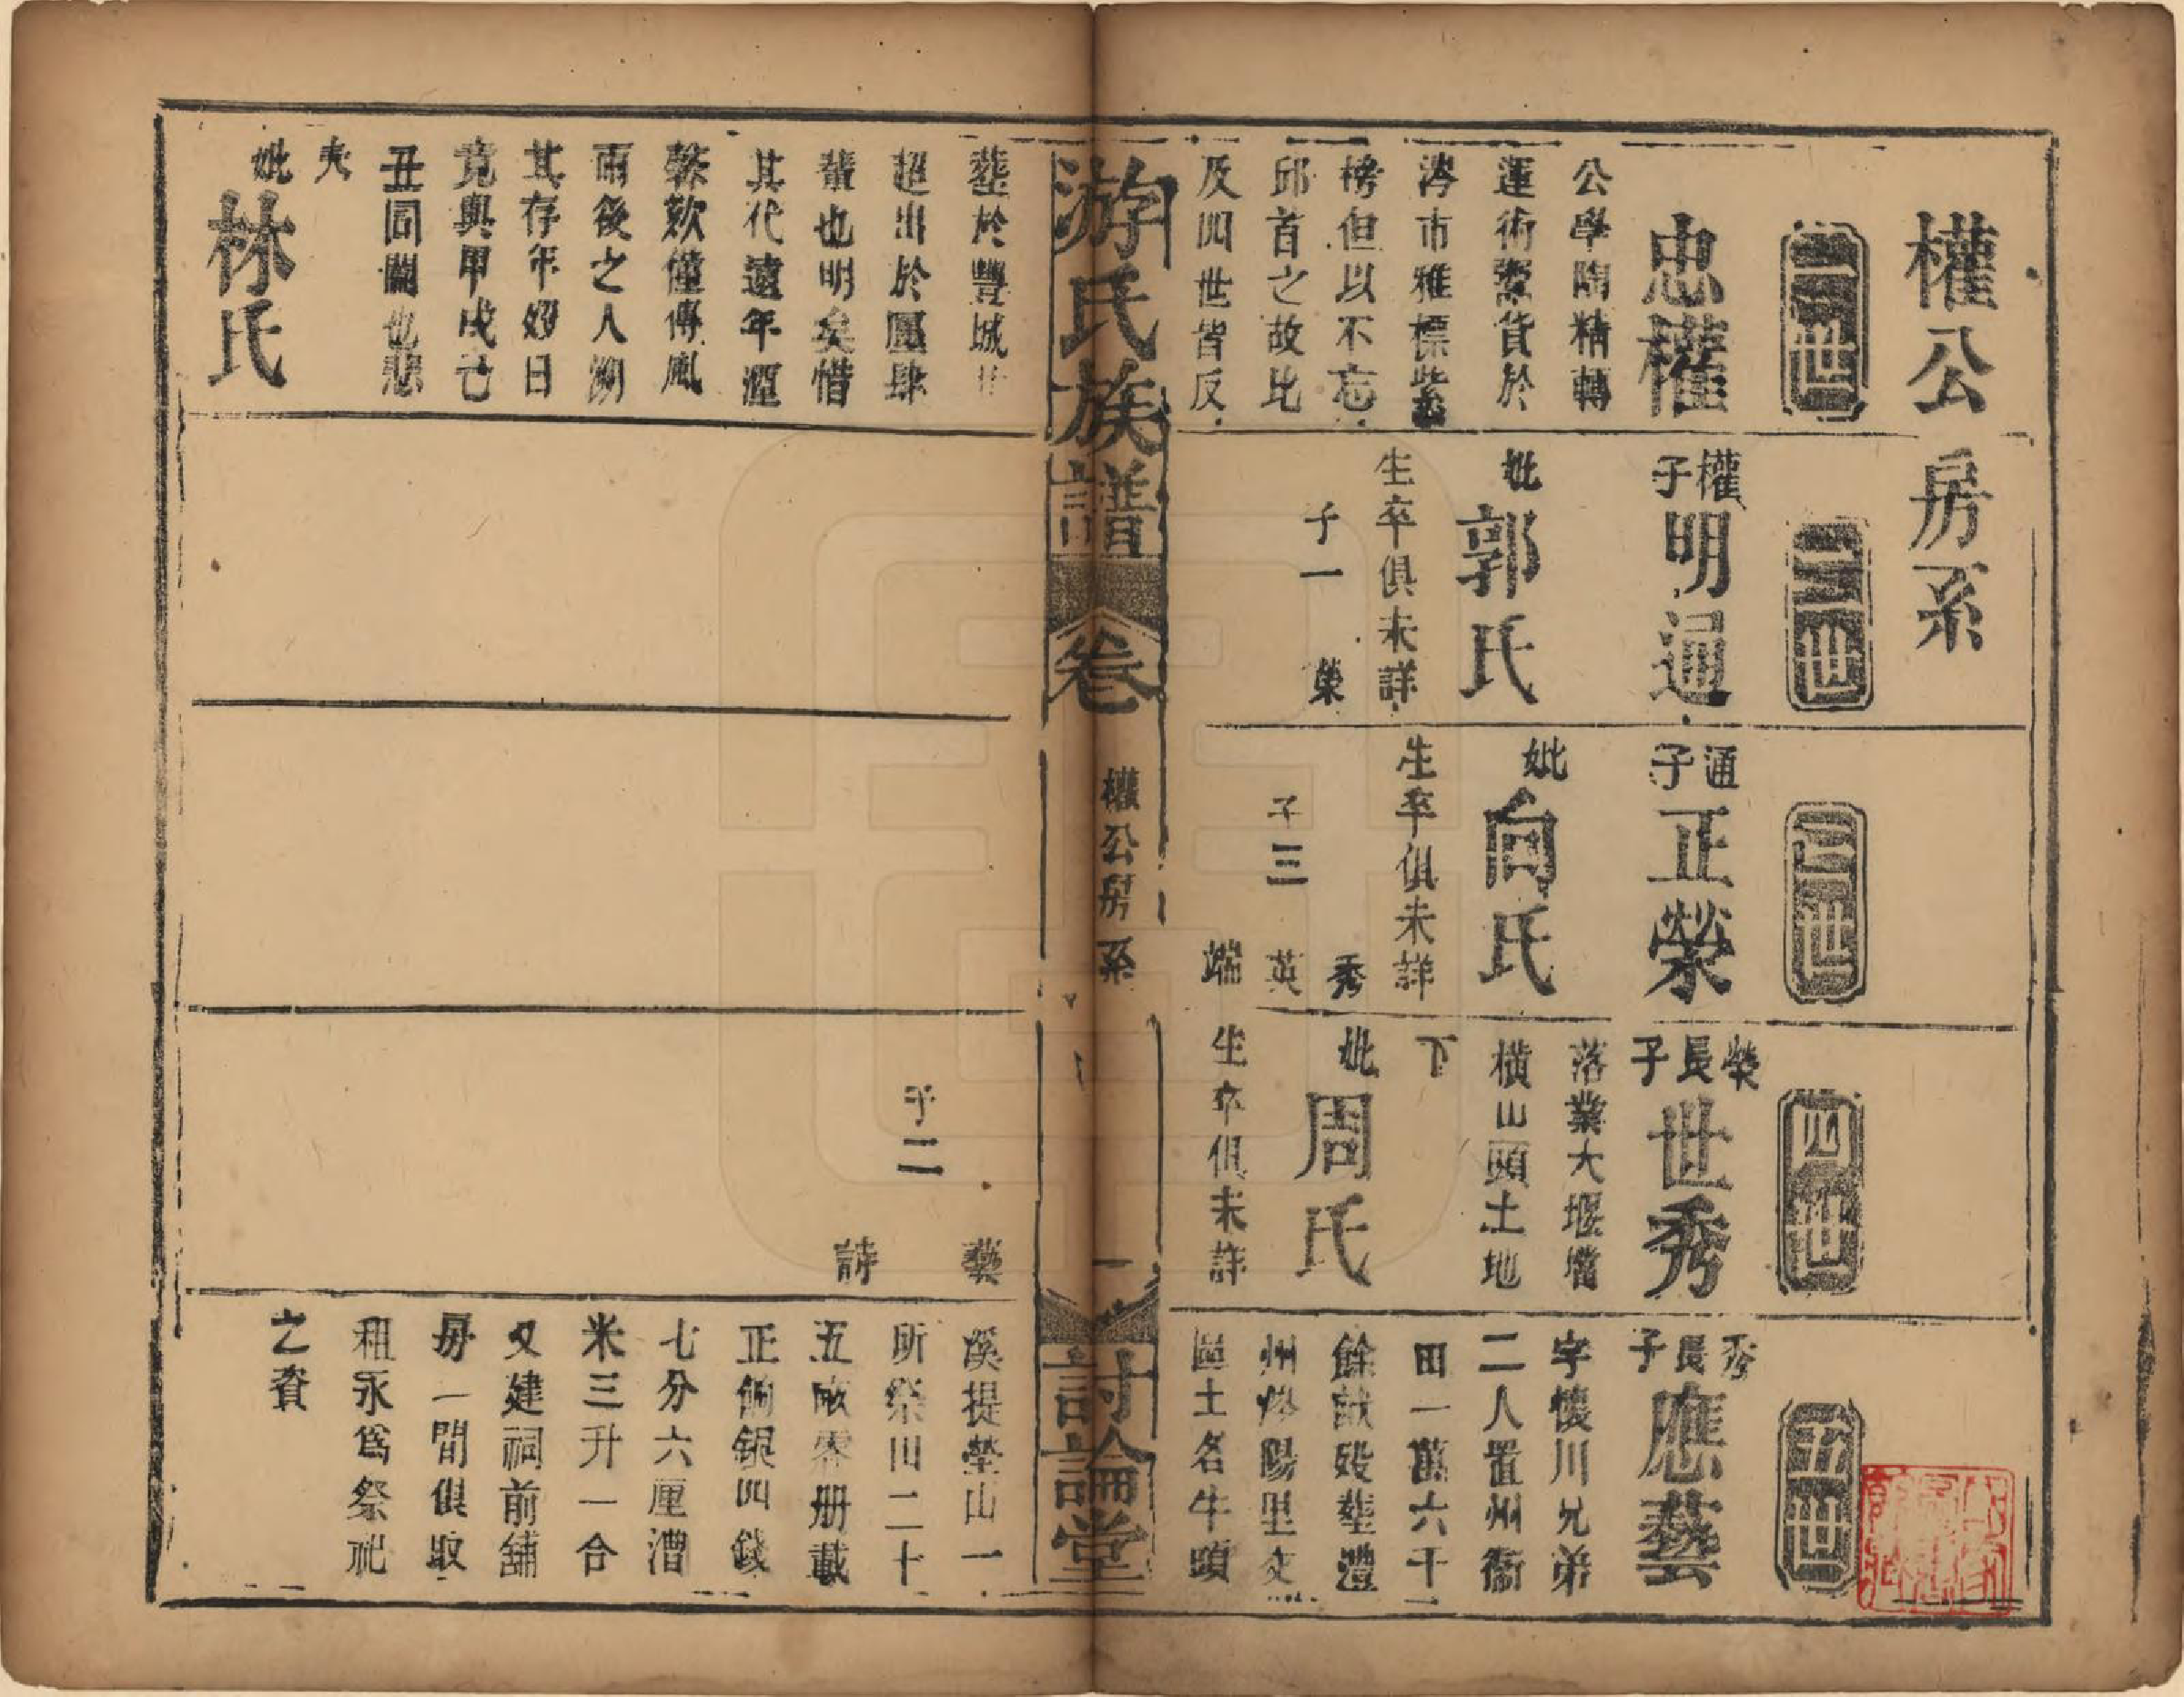 權公房系
一世
忠權
公學陶精轉
運術鬻貨於
涔市雅標紫
榜但以不忘
邱首之故比
及四世皆反
葬於豐城
超出於廛肆
輩也明矣惜
其代遠年湮
疑欵僅傳風
雨後之人溯
其存年歿日
竟與甲戌己
丑同闕也悲
夫
妣林氏
二世
權子明通
妣郭氏
生卒俱未詳
子一 榮
三世
通子正榮
妣向氏
生卒俱未詳
子三 秀
英
端
四世
榮長子世秀
落業大堰壋
橫山頭土地
下
妣周氏
生卒俱未詳
子二 藝
詩
五世
秀長子應藝
字懷川兄弟
二人置州衞
田一萬六千
餘畝歿葬澧
州 陽里文
區土名牛頭
溪提塋山一
所祭田二十
五畝零册載
正餉銀四錢
七分六厘漕
米三升一合
又建祠前舖
房一間俱取
租永爲祭祀
之資
游氏族譜
卷
權公房系
一
討論堂